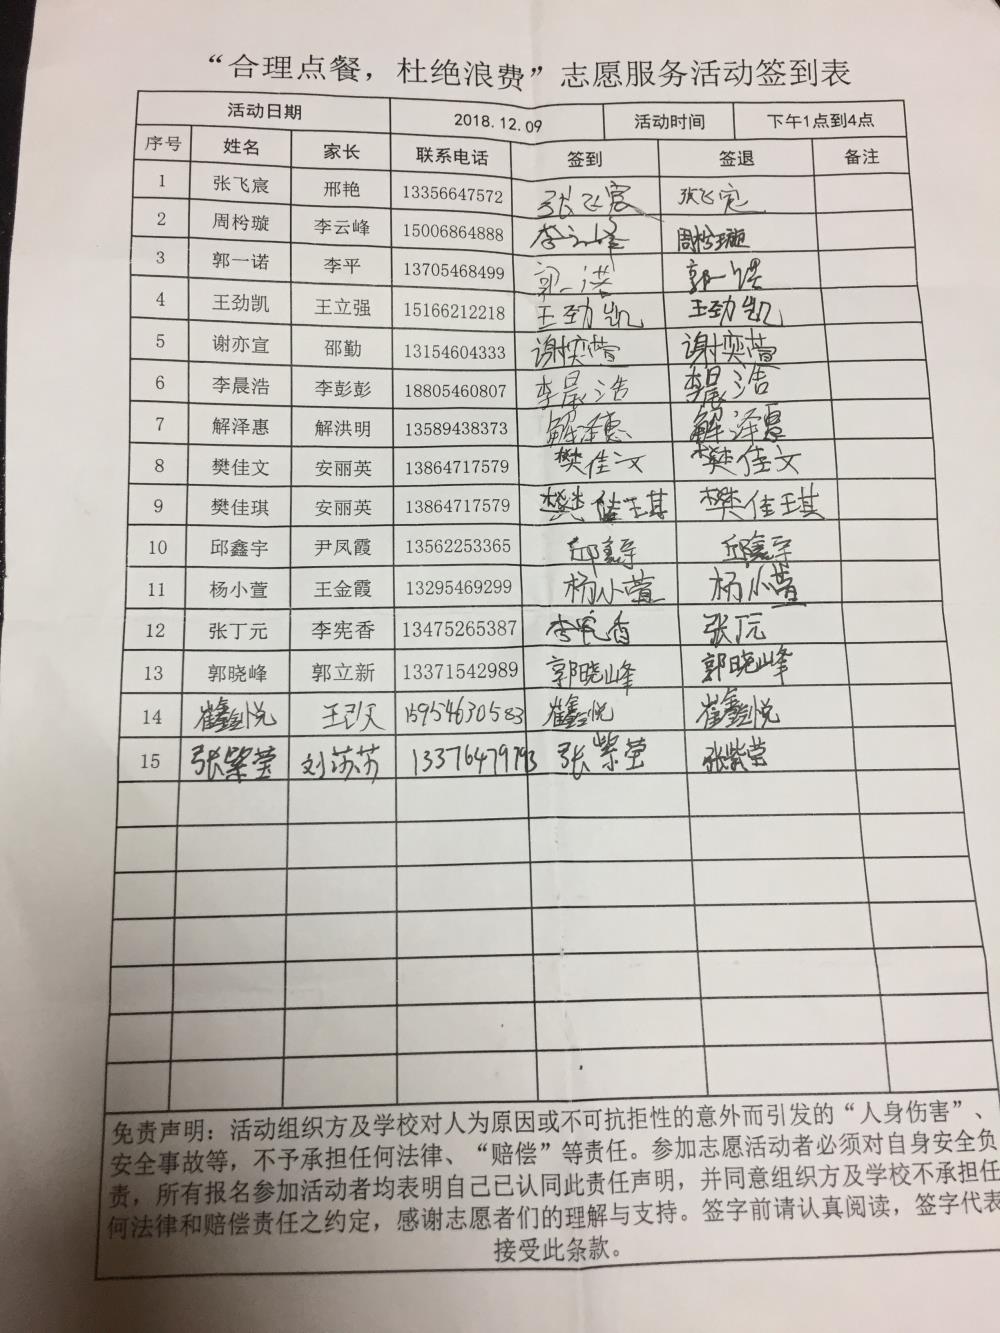 “合理点餐，杜绝浪费”志愿服务活动签到表
活动日期 2018.12.09 活动时间 下午1点到4点
序号 姓名 家长 联系电话 签到 签退 备注
1 张飞宸 邢艳 13356647572 张飞宸 张飞宸
2 周枍璇 李云峰 15006864888 李云峰 周枍璇
3 郭一诺 李平 13705468499 郭一诺 郭一诺
4 王劲凯 王立强 15166212218 王劲凯 王劲凯
5 谢亦宣 邵勤 13154604333 谢奕萱 谢奕萱
6 李晨浩 李彭彭 18805460807 李晨浩 李晨浩
7 解泽惠 解洪明 13589438373 解泽惠 解泽惠
8 樊佳文 安丽英 13864717579 樊佳文 樊佳文
9 樊佳琪 安丽英 13864717579 樊佳琪 樊佳琪
10 邱鑫宇 尹凤霞 13562253365 邱鑫宇 邱鑫宇
11 杨小萱 王金霞 13295469299 杨小萱 杨小萱
12 张丁元 李宪香 13475265387 李宪香 张丁元
13 郭晓峰 郭立新 13371542989 郭晓峰 郭晓峰
14 崔鑫悦 15954630583 崔鑫悦 崔鑫悦
15 张紫莹 刘莎莎 13376479793 张紫莹 张紫莹
免责声明：活动组织方及学校对人为原因或不可抗拒性的意外而引发的“人身伤害”、
安全事故等，不予承担任何法律、“赔偿”等责任。参加志愿活动者必须对自身安全负
责，所有报名参加活动者均表明自己已认同此责任声明，并同意组织方及学校不承担任
何法律和赔偿责任之约定，感谢志愿者们的理解与支持。签字前请认真阅读，签字代表
接受此条款。